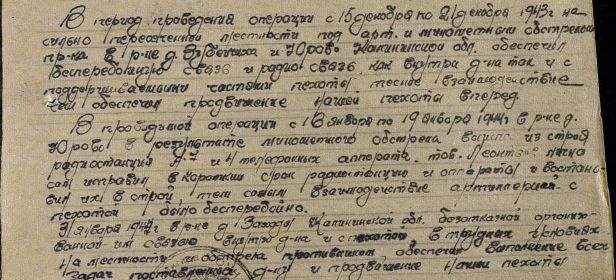 В период проведения операции с 15 декабря по 21 декабря 1943г на
сильно пересеченной местности под арт. и минометным обстрелом
пр-ка в р-не д. и Юрово Калининской обл. обеспечил
бесперебойную связь и радио связь как внутри д-на так и с
поддерживаемыми частями пехоты тесное взаимодействие
чем обеспечил продвижение нашей пехоты вперед.
В проводимой операции с 18 января по 19 января 1944г в р-не д.
Юрово в результате минометного обстрела вышла из строя
радиостанция и 4 телефонных аппарата. тов. лично
сам исправил в короткий срок радиостанцию и аппараты и восстано-
вил их в строй, тем самым взаимодействие артиллерией с
пехотой было бесперебойно.
31 января 1944г в р-не д. Заходы Калининской обл. безотказной организо-
ванной им связью внутри д-на и с пехотой в трудных условиях
на местности и обстрела противником обеспечил выполнение всех
задач поставленных д-ну и продвижение нашей пехоты